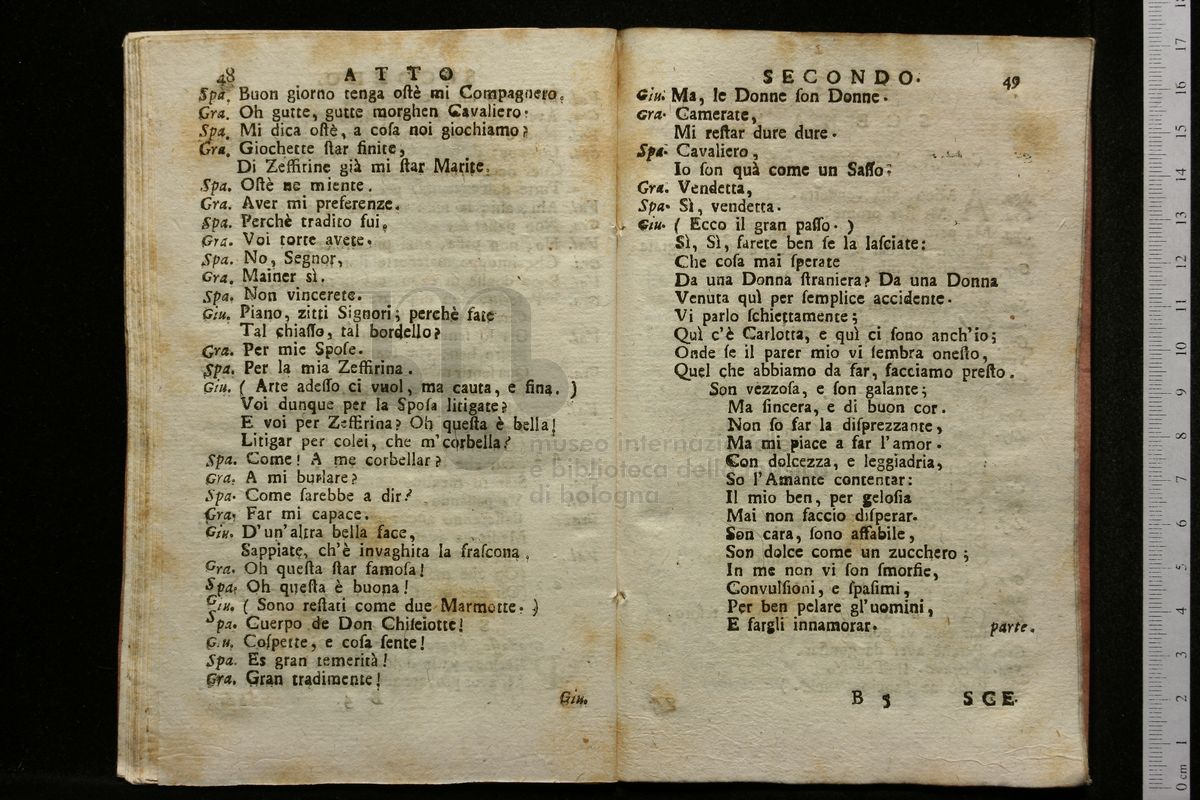 48 ATTO
Spa. Buon giorno tenga ostè mi Compagnero.
Gra. Oh gutte, gutte morghen Cavaliero.
Spa. Mi dica ostè, a cosa noi giochiamo?
Gra. Giochette star finite,
Di Zeffirine già mi star Marite.
Spa. Ostè ne miente.
Gra. Aver mi preferenze.
Spa. Perchè tradito fui.
Gra. Voi torte avete.
Spa. No, Segnor,
Gra. Mainer sì.
Spa. Non vincerete.
Giu. Piano, zitti Signori; perchè fate
Tal chiasso, tal bordello?
Gra. Per mie Spose.
Spa. Per la mia Zeffirina.
Giu. ( Arte adesso ci vuol, ma cauta, e fina. )
Voi dunque per la Sposa litigate?
E voi per Zeffirina? Oh questa è bella!
Litigar per colei, che m'corbella?
Spa. Come! A me corbellar?
Gra. A mi burlare?
Spa. Come sarebbe a dir?
Gra. Far mi capace.
Giu. D'un'altra bella face,
Sappiate, ch'è invaghita la frascona.
Gra. Oh questa star famosa!
Spa. Oh questa è buona!
Giu. ( Sono restati come due Marmotte. )
Spa. Cuerpo de Don Chisciotte!
G.u. Cospette, e cosa sente!
Spa. Es gran temerità!
Gra. Gran tradimente!
Giu.
SECONDO. 49
Giu. Ma, le Donne son Donne.
Gra. Camerate,
Mi restar dure dure.
Spa. Cavaliero,
Io son quà come un Sasso.
Gra. Vendetta,
Spa. Sì, vendetta.
Giu. ( Ecco il gran passo. )
Sì, Sì, farete ben se la lasciate:
Che cosa mai sperate
Da una Donna straniera? Da una Donna
Venuta quì per semplice accidente.
Vi parlo schiettamente;
Quì c'è Carlotta, e quì ci sono anch'io;
Onde se il parer mio vi sembra onesto,
Quel che abbiamo da far, facciamo presto.
Son vezzosa, e son galante;
Ma sincera, e di buon cor.
Non so far la disprezzante,
Ma mi piace a far l'amor.
Con dolcezza, e leggiadria,
So l'Amante contentar:
Il mio ben, per gelosia
Mai non faccio disperar.
Son cara, sono affabile,
Son dolce come un zucchero;
In me non vi son smorfie,
Convulsioni, e spasimi,
Per ben pelare gl'uomini,
E fargli innamorar. parte.
B 5 SCE.
museo internazionale
e biblioteca della musica
di bologna